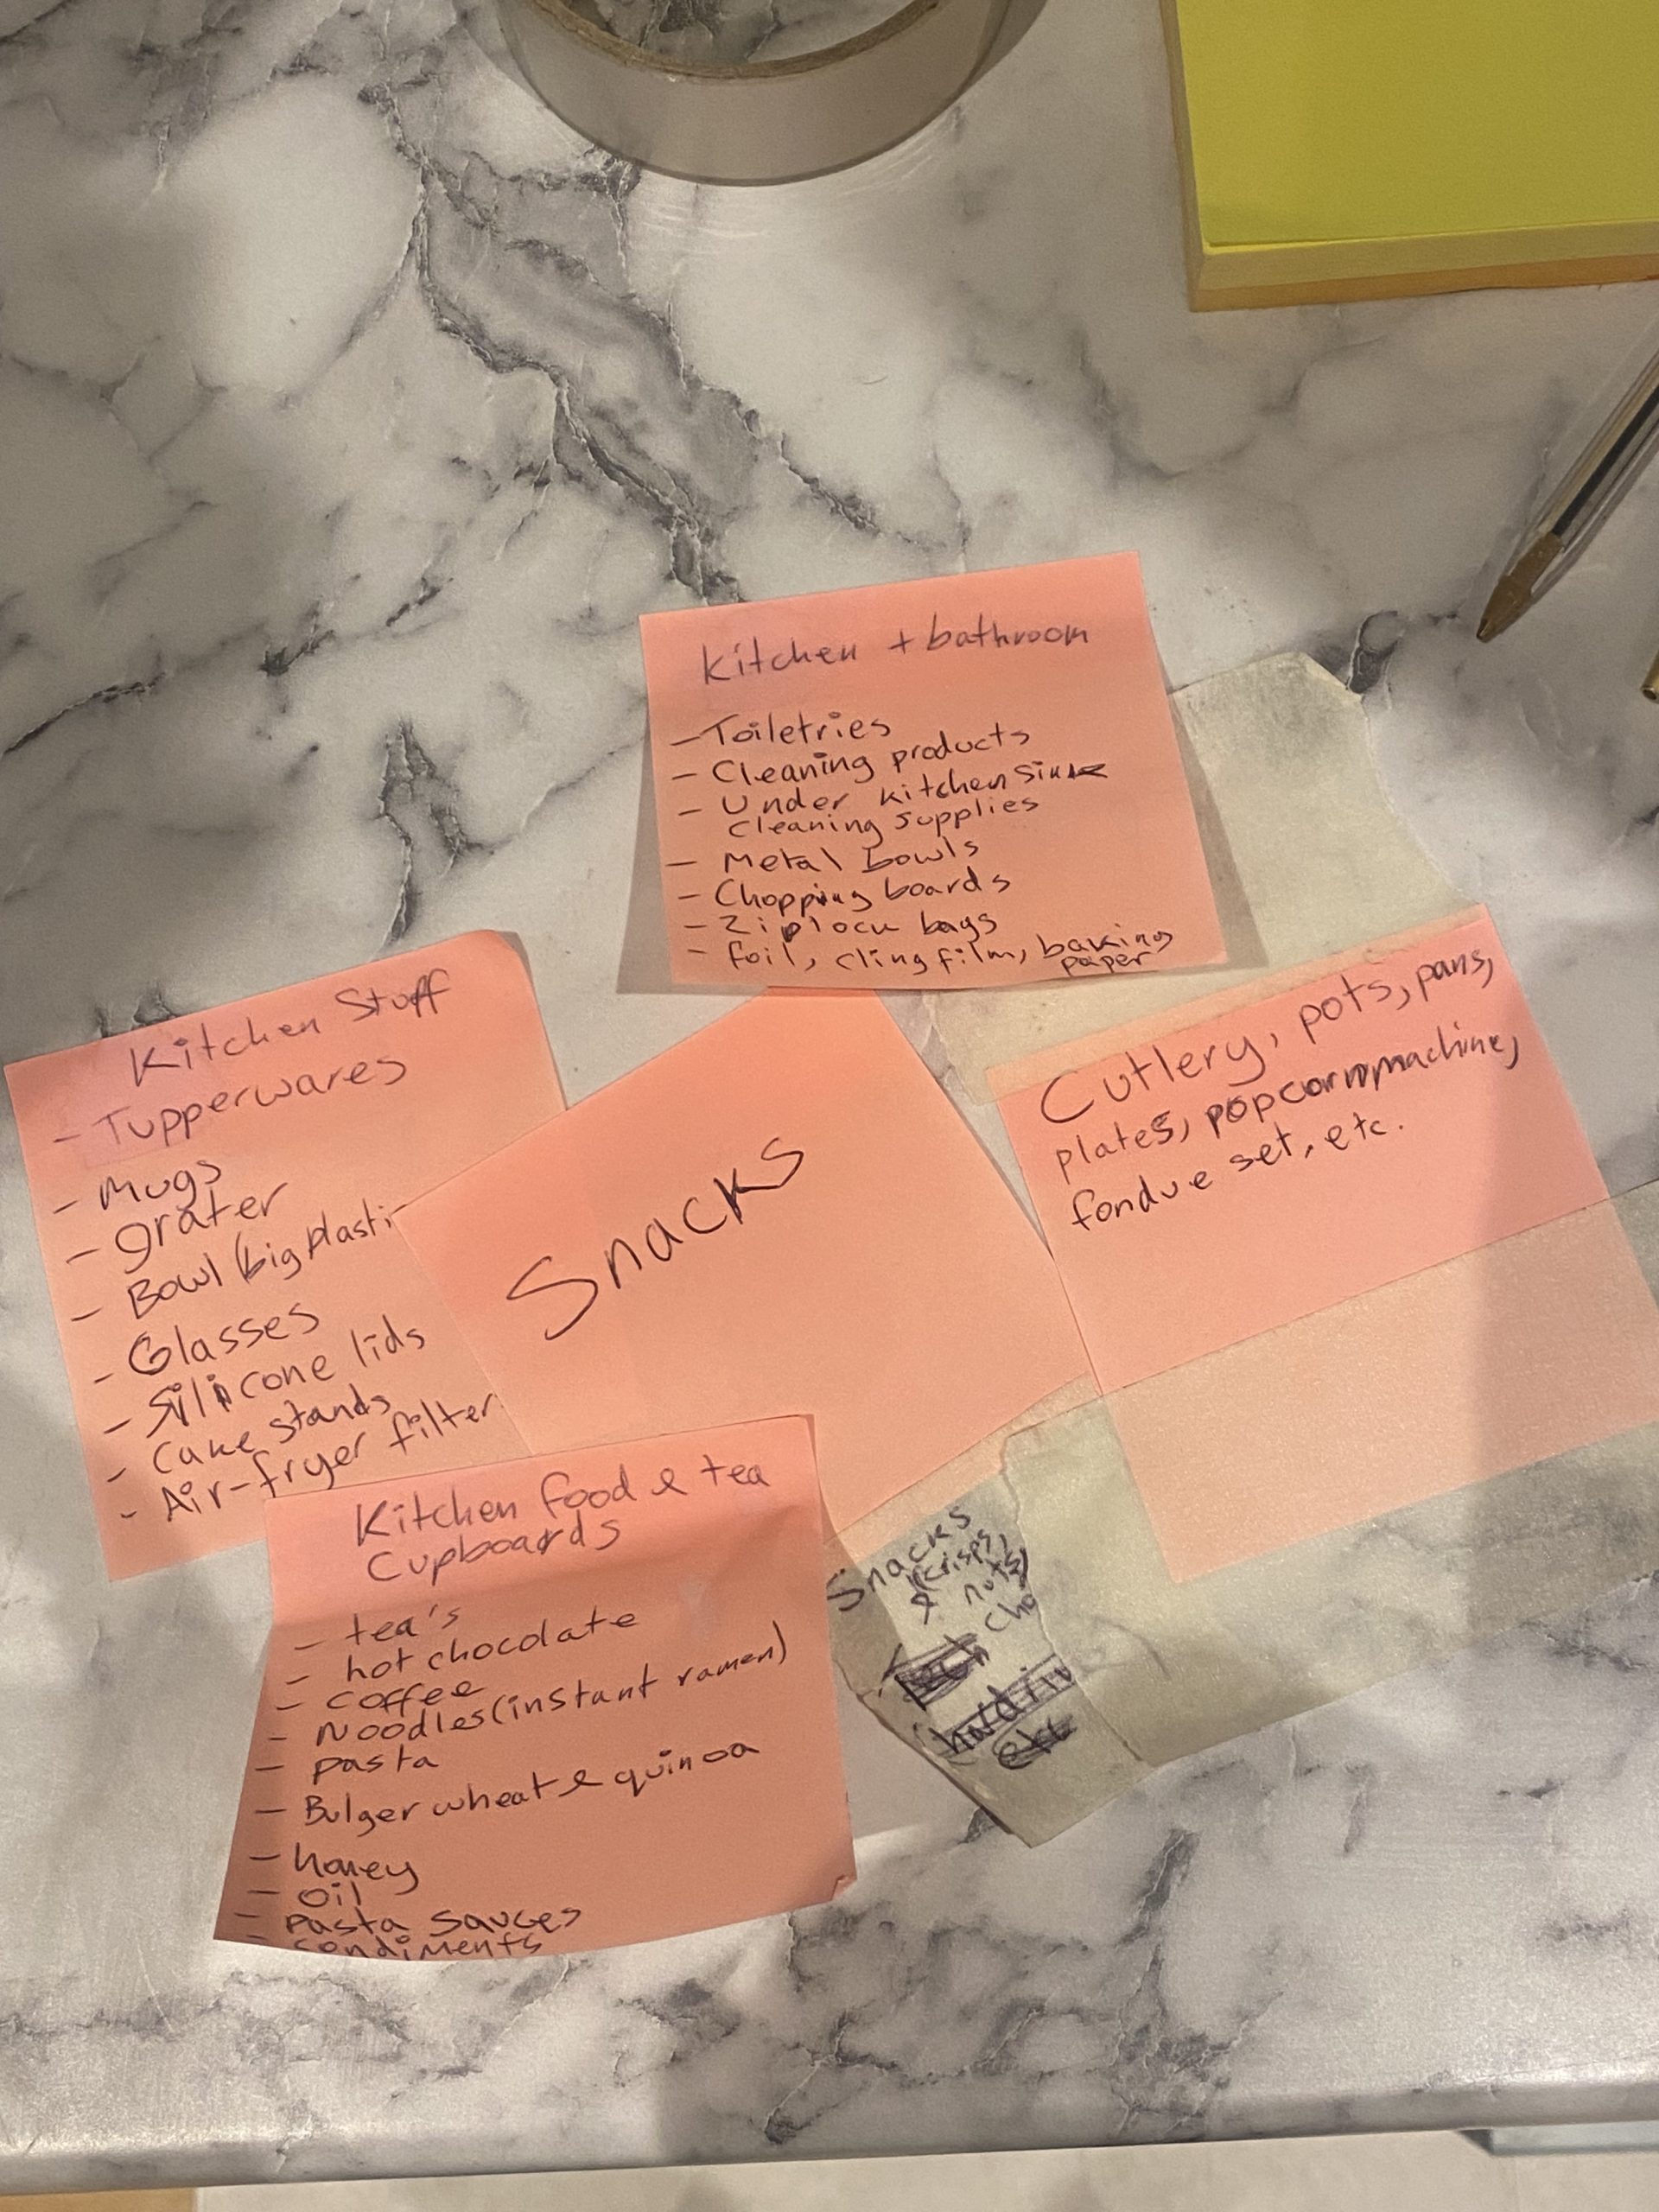 Kitchen + bathroom
- Toiletries
- Cleaning products
- Under kitchen sink
cleaning supplies
- Metal bowls
- Chopping boards
- Ziplock bags
- foil, cling film, baking
paper
Kitchen Stuff
- Tupperwares
- Mugs
- grater
- Bowl (big plasti
- Glasses
- Silicone lids
- Cake stands
- Air-fryer filter
Snacks
Cutlery, pots, pans,
plates, popcorn machine,
fondue set, etc.
Kitchen food & tea
Cupboards
- tea's
- hot chocolate
- coffee
- Noodles (instant ramen)
- pasta
- Bulger wheat & quinoa
- honey
- oil
- pasta sauces
- condiments
Snacks
(crisps,
& nuts,
cho